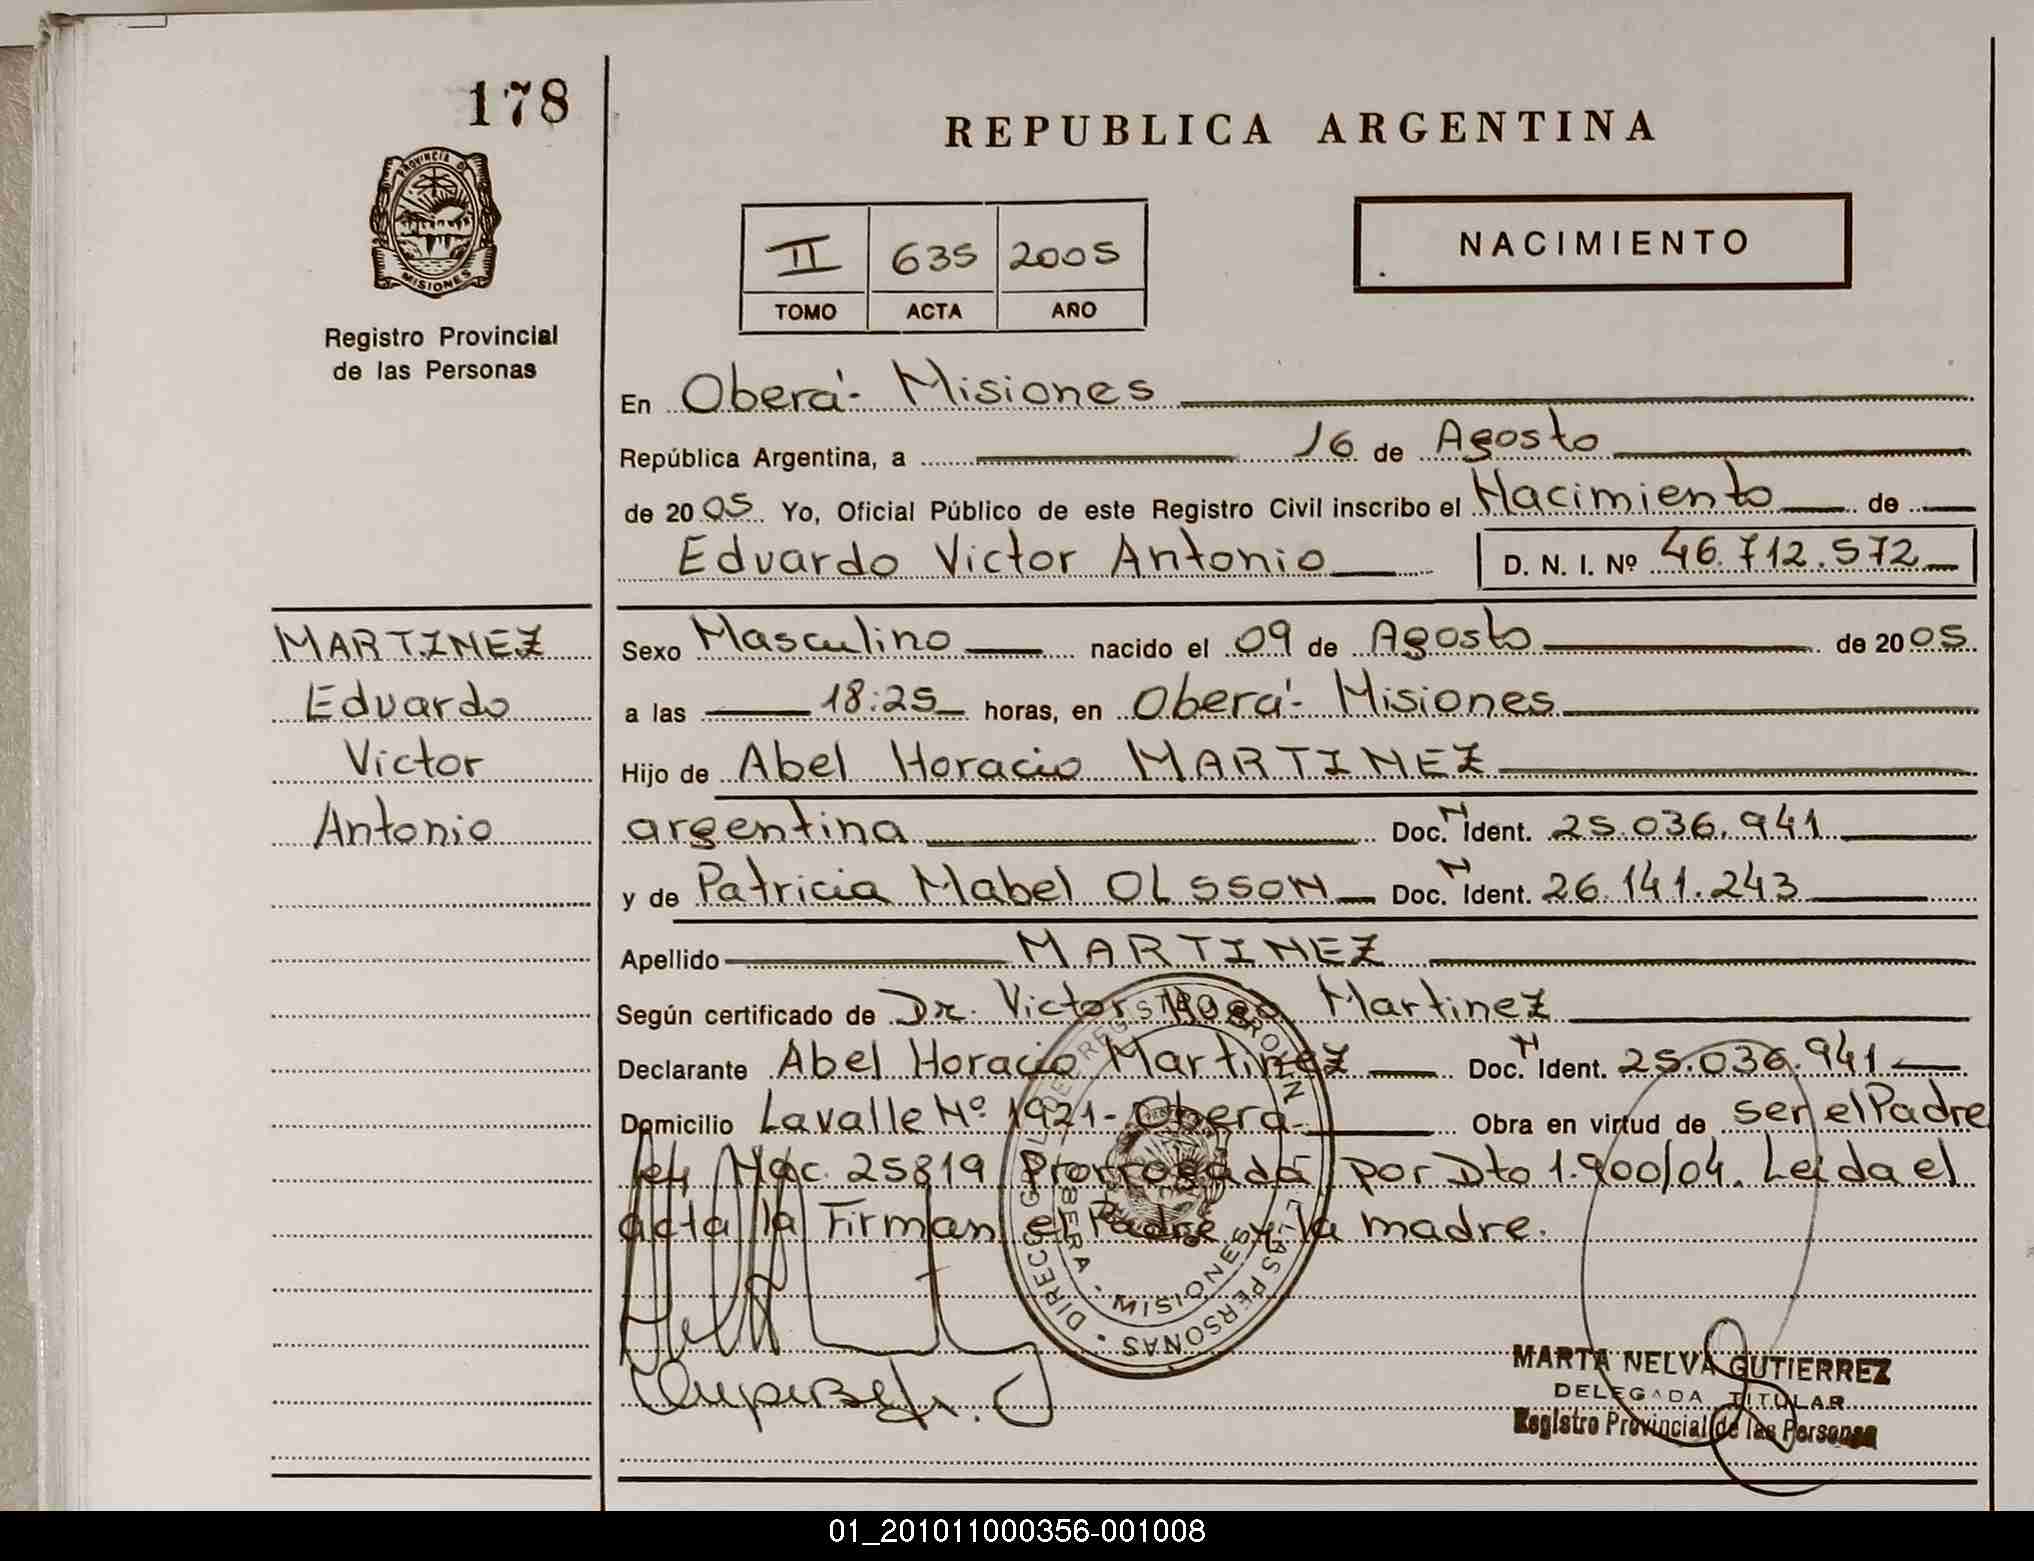 178
PROVINCIA DE
MISIONES
Registro Provincial
de las Personas
REPUBLICA ARGENTINA
II 635 2005
TOMO ACTA AÑO
NACIMIENTO
En Oberá- Misiones
República Argentina, a 16 de Agosto
de 2005 Yo, Oficial Público de este Registro Civil inscribo el Nacimiento de
Eduardo Victor Antonio D. N. I. Nº 46.712.572
MARTINEZ
Eduardo
Victor
Antonio
Sexo Masculino nacido el 09 de Agosto de 2005
a las 18:25 horas, en Oberá- Misiones
Hijo de Abel Horacio MARTINEZ
argentina Doc. N Ident. 25.036.941
y de Patricia Mabel OLSSON Doc. N Ident. 26.141.243
Apellido MARTINEZ
Según certificado de Dr. Victor Hugo Martinez
Declarante Abel Horacio Martinez Doc. N Ident. 25.036.941
Domicilio Lavalle Nº 1921- Oberá- Obra en virtud de ser el Padre
Ley Nac. 25819 Prorrogada por Dto 1.900/04. Leída el
acta la Firman el Padre y la madre.
DIRECC. GRAL. DEL REGISTRO PROVIN. DE LAS PERSONAS
OBERA - MISIONES
MARTA NELVA GUTIERREZ
DELEGADA TITULAR
Registro Provincial de las Personas
01_201011000356-001008